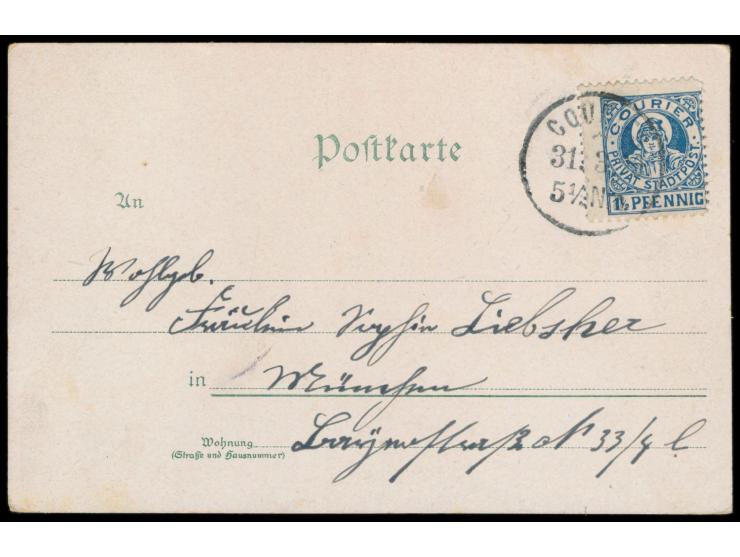 Postkarte
COURIER
PRIVAT STADTPOST.
PFENNIG
COU
31. 3
5½ N
An
Wohlgeb.
Fräulein Sophie Liebscher
in München
Wohnung
(Straße und Hausnummer)
33/4 l